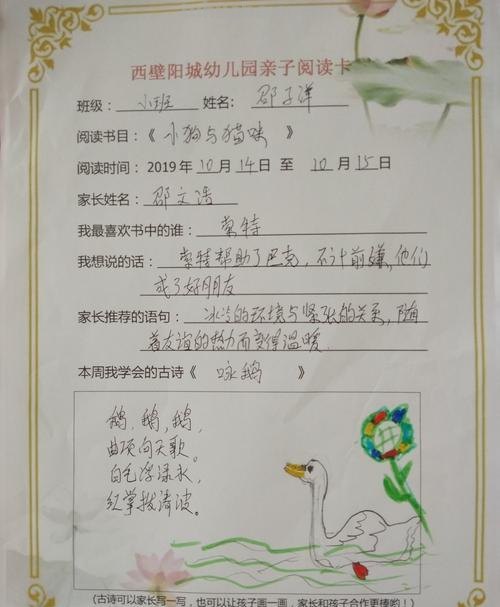 西壁阳城幼儿园亲子阅读卡
班级：小班 姓名：邵子洋
阅读书目：《小狗与猫咪》
阅读时间：2019年10月14日至10月15日
家长姓名：邵文浩
我最喜欢书中的谁：蒙特
我想说的话：蒙特帮助了巴克，不计前嫌，他们
成了好朋友
家长推荐的语句：冰冷的环境与紧张的关系，随
着友谊的热力而变得温暖.
本周我学会的古诗《 咏鹅 》
鹅，鹅，鹅，
曲项向天歌。
白毛浮渌水，
红掌拨清波。
(古诗可以家长写一写，也可以让孩子画一画，家长和孩子合作更棒哟！)